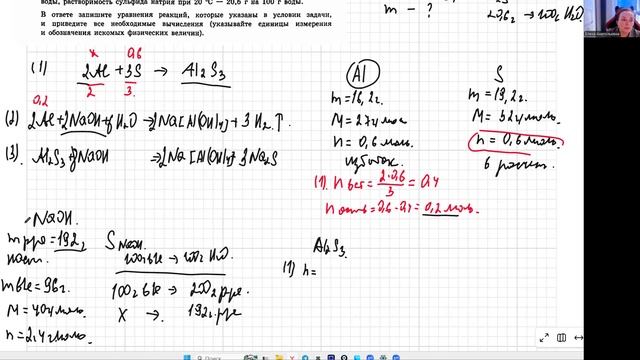 воды, растворимость сульфида натрия при 20 °С — 20,6 г на 100 г воды.
В ответе запишите уравнения реакций, которые указаны в условии задачи,
и приведите все необходимые вычисления (указывайте единицы измерения
и обозначения искомых физических величин).
m - ?
20,6г → 100г H2O
x 0,6
(1) 2Al + 3S → Al2S3
2 3
0,2
(2) 2Al+2NaOH+6H2O→2Na[Al(OH)4]+3H2↑
(3) Al2S3+8NaOH → 2Na[Al(OH)4]+3Na2S
Al
m=16,2г.
M=27г/моль
n=0,6 моль.
избыток
S
m=19,2г.
M=32г/моль.
n=0,6моль.
в расчет.
(1). n вст = 2·0,6/3 = 0,4
n ост = 0,6-0,4=0,2 моль.
NaOH.
m рра=192г
наст.
m вва=96г
M=40г/моль.
n=2,4моль.
S NaOH
100г вва → 100г H2O
100г вва → 200г рра.
X → 192г рра
Al2S3.
(1) n=
Поиск